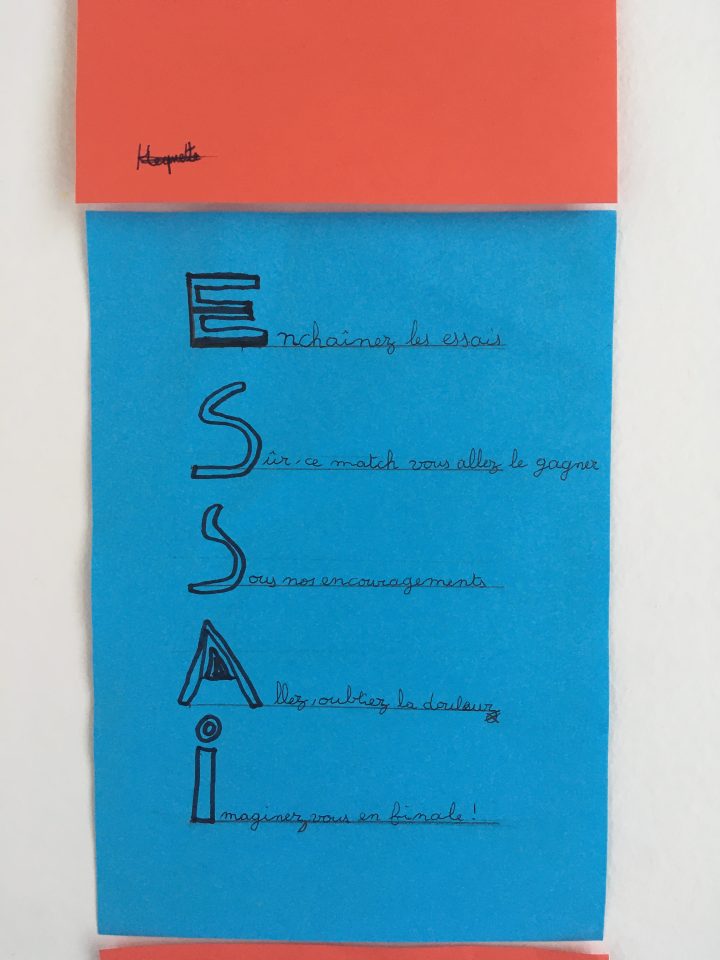 Enchaînez les essais
Sûr, ce match vous allez le gagner
Sous nos encouragements
Allez, oubliez la douleur
Imaginez vous en finale !